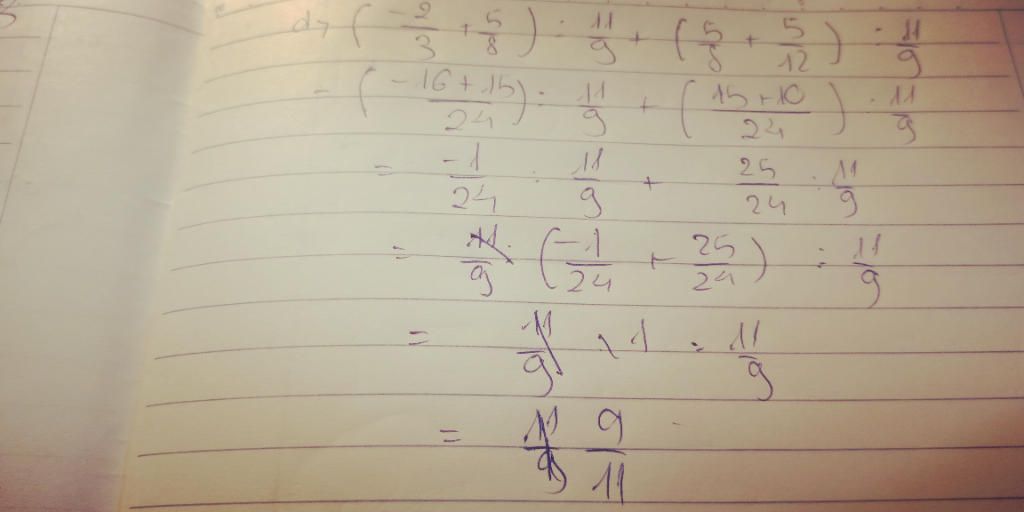 d, (-2/3 + 5/8) : 11/9 + (5/8 + 5/12) : 11/9
= (-16+15/24) : 11/9 + (15+10/24) : 11/9
= -1/24 : 11/9 + 25/24 : 11/9
= 11/9 · (-1/24 + 25/24) : 11/9
= 11/9 \ 1 : 11/9
= 11/9 9/11